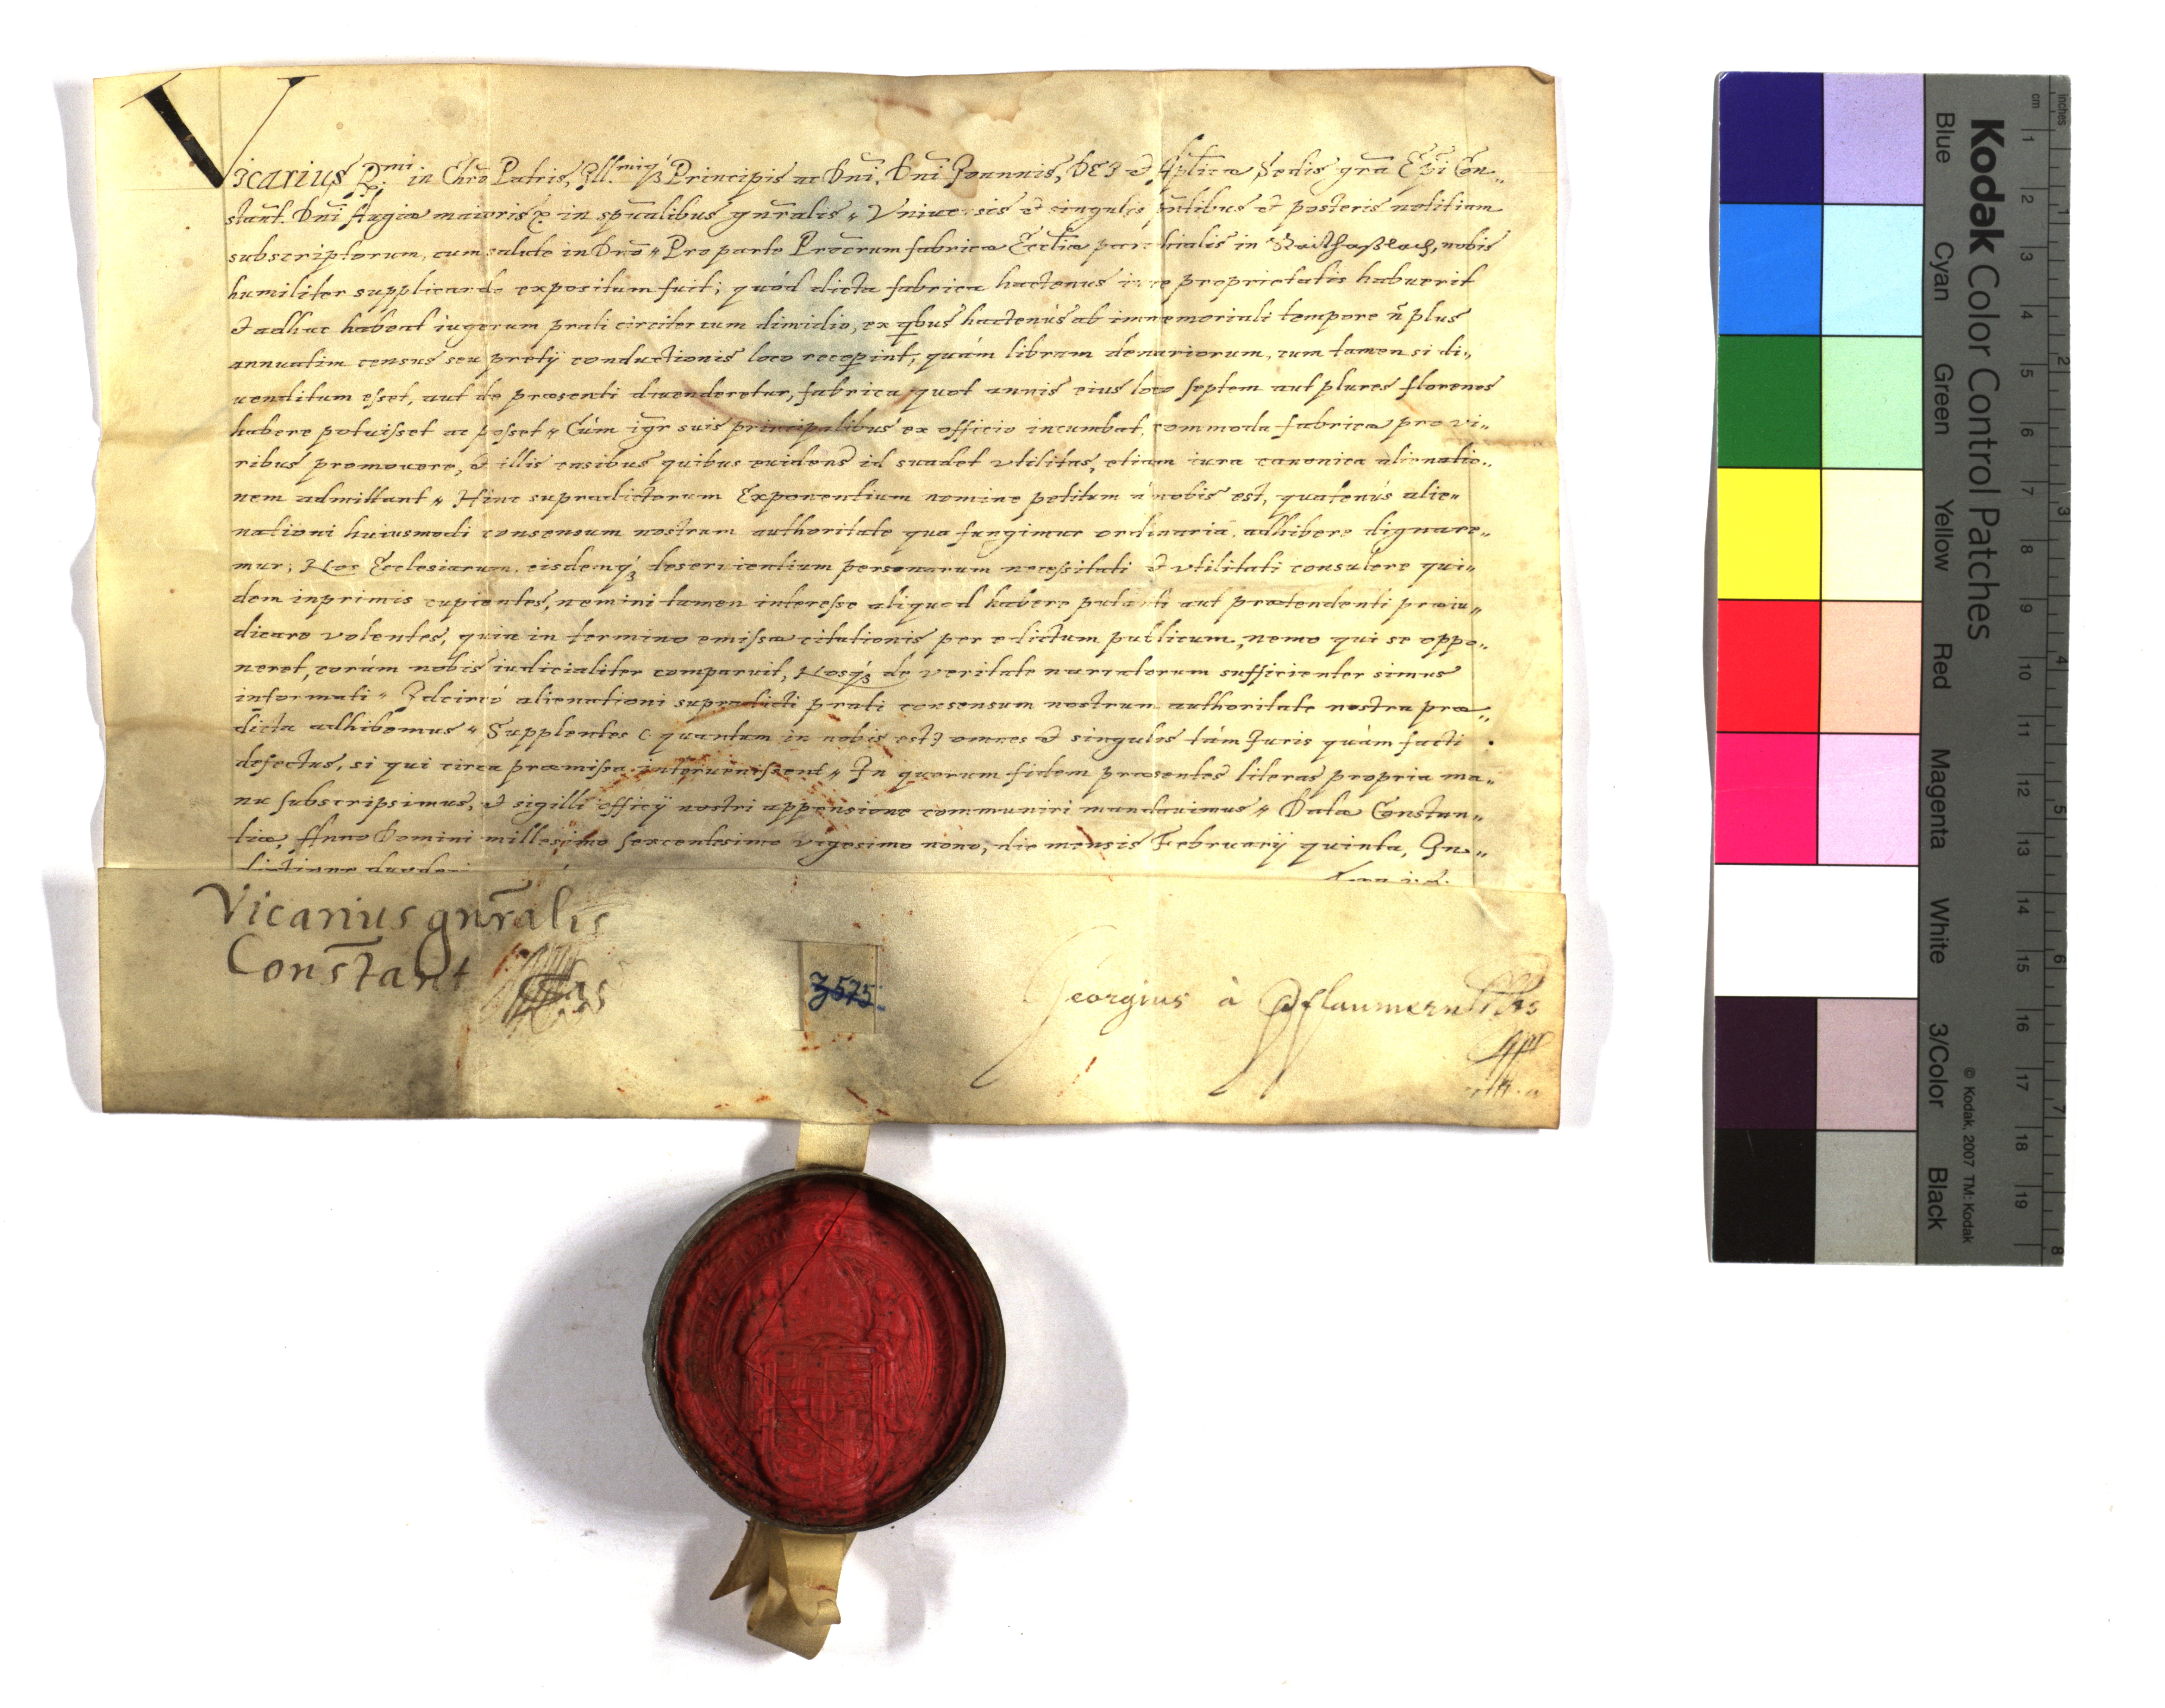 Vicarius R.mi in Chro Patris, Ill.miq3 Principis ac Dni, Dni Joannis, DEI et Aplicæ Sedis gra Epi Con„
stant. Dni Augiæ maioris &c in spualibus gnralis „ Vniuersis et singulis pntibus et posteris notitiam
subscriptorum, cum salute in Dno „ Pro parte Procrum fabricæ Eccliæ parochialis in Raithaßlach, nobis
humiliter supplicando expositum fuit; quód dicta fabrica hactenus iure proprietatis habuerit
et adhuc habeat iugerum prati circiter cum dimidio, ex qbus hactenús ab immemoriali tempore ñ plus
annuatim census seu pretij conductionis loco recepint, quám libram denariorum, cum tamen si di„
uenditum esset, aut de præsenti diuenderetur, fabrica quot annis eius loco septem aut plures florenos
habere potuisset ac posset „ Cúm igr suis principalibus ex officio incumbat, commoda fabricæ pro vi„
ribus promouere, et illis casibus quibus euidens id suadet vtilitas, etiam iura canonica alienatio„
nem admittant „ Hinc supradictorum Exponentium nomine petitum á nobis est, quatenús alie„
nationi huiusmodi consensum nostrum authoritate qua fungimur ordinaria adhibere dignare„
mur; Nos Ecclesiarum, eisdemq3 deseruientium personarum necessitati et vtilitati consulere qui„
dem inprimis cupientes, nemini tamen interesse aliquod habere putanti aut prætendenti præiu„
dicare volentes, quia in termino emissæ citationis per edictum publicum, nemo qui se oppo„
neret, corám nobis iudicialiter comparuit, Nosq3 de veritate narratorum sufficienter simus
informati „ Idcircó alienationi supradicti prati consensum nostrum authoritate nostra præ„
dicta adhibemus „ Supplentes (quantum in nobis est) omnes et singulos tám Juris quàm facti
defectus, si qui circa præmissa interuenissent „ In quorum fidem præsentes literas propria ma„
nu subscripsimus, et sigilli officij nostri appensione communiri mandauimus „ Datæ Constan„
tiæ, Anno Domini millesimo sexcentesimo vigesimo nono, die mensis Februarij quinta, In„
Vicarius gnralis
Constant
3575
Georgius à Pflaumern
Kodak Color Control Patches
Blue Cyan Green Yellow Red Magenta White 3/Color Black
© Kodak, 2007 TM: Kodak
cm 1 2 3 4 5 6 7 8 9 10 11 12 13 14 15 16 17 18 19
inches 1 2 3 4 5 6 7 8